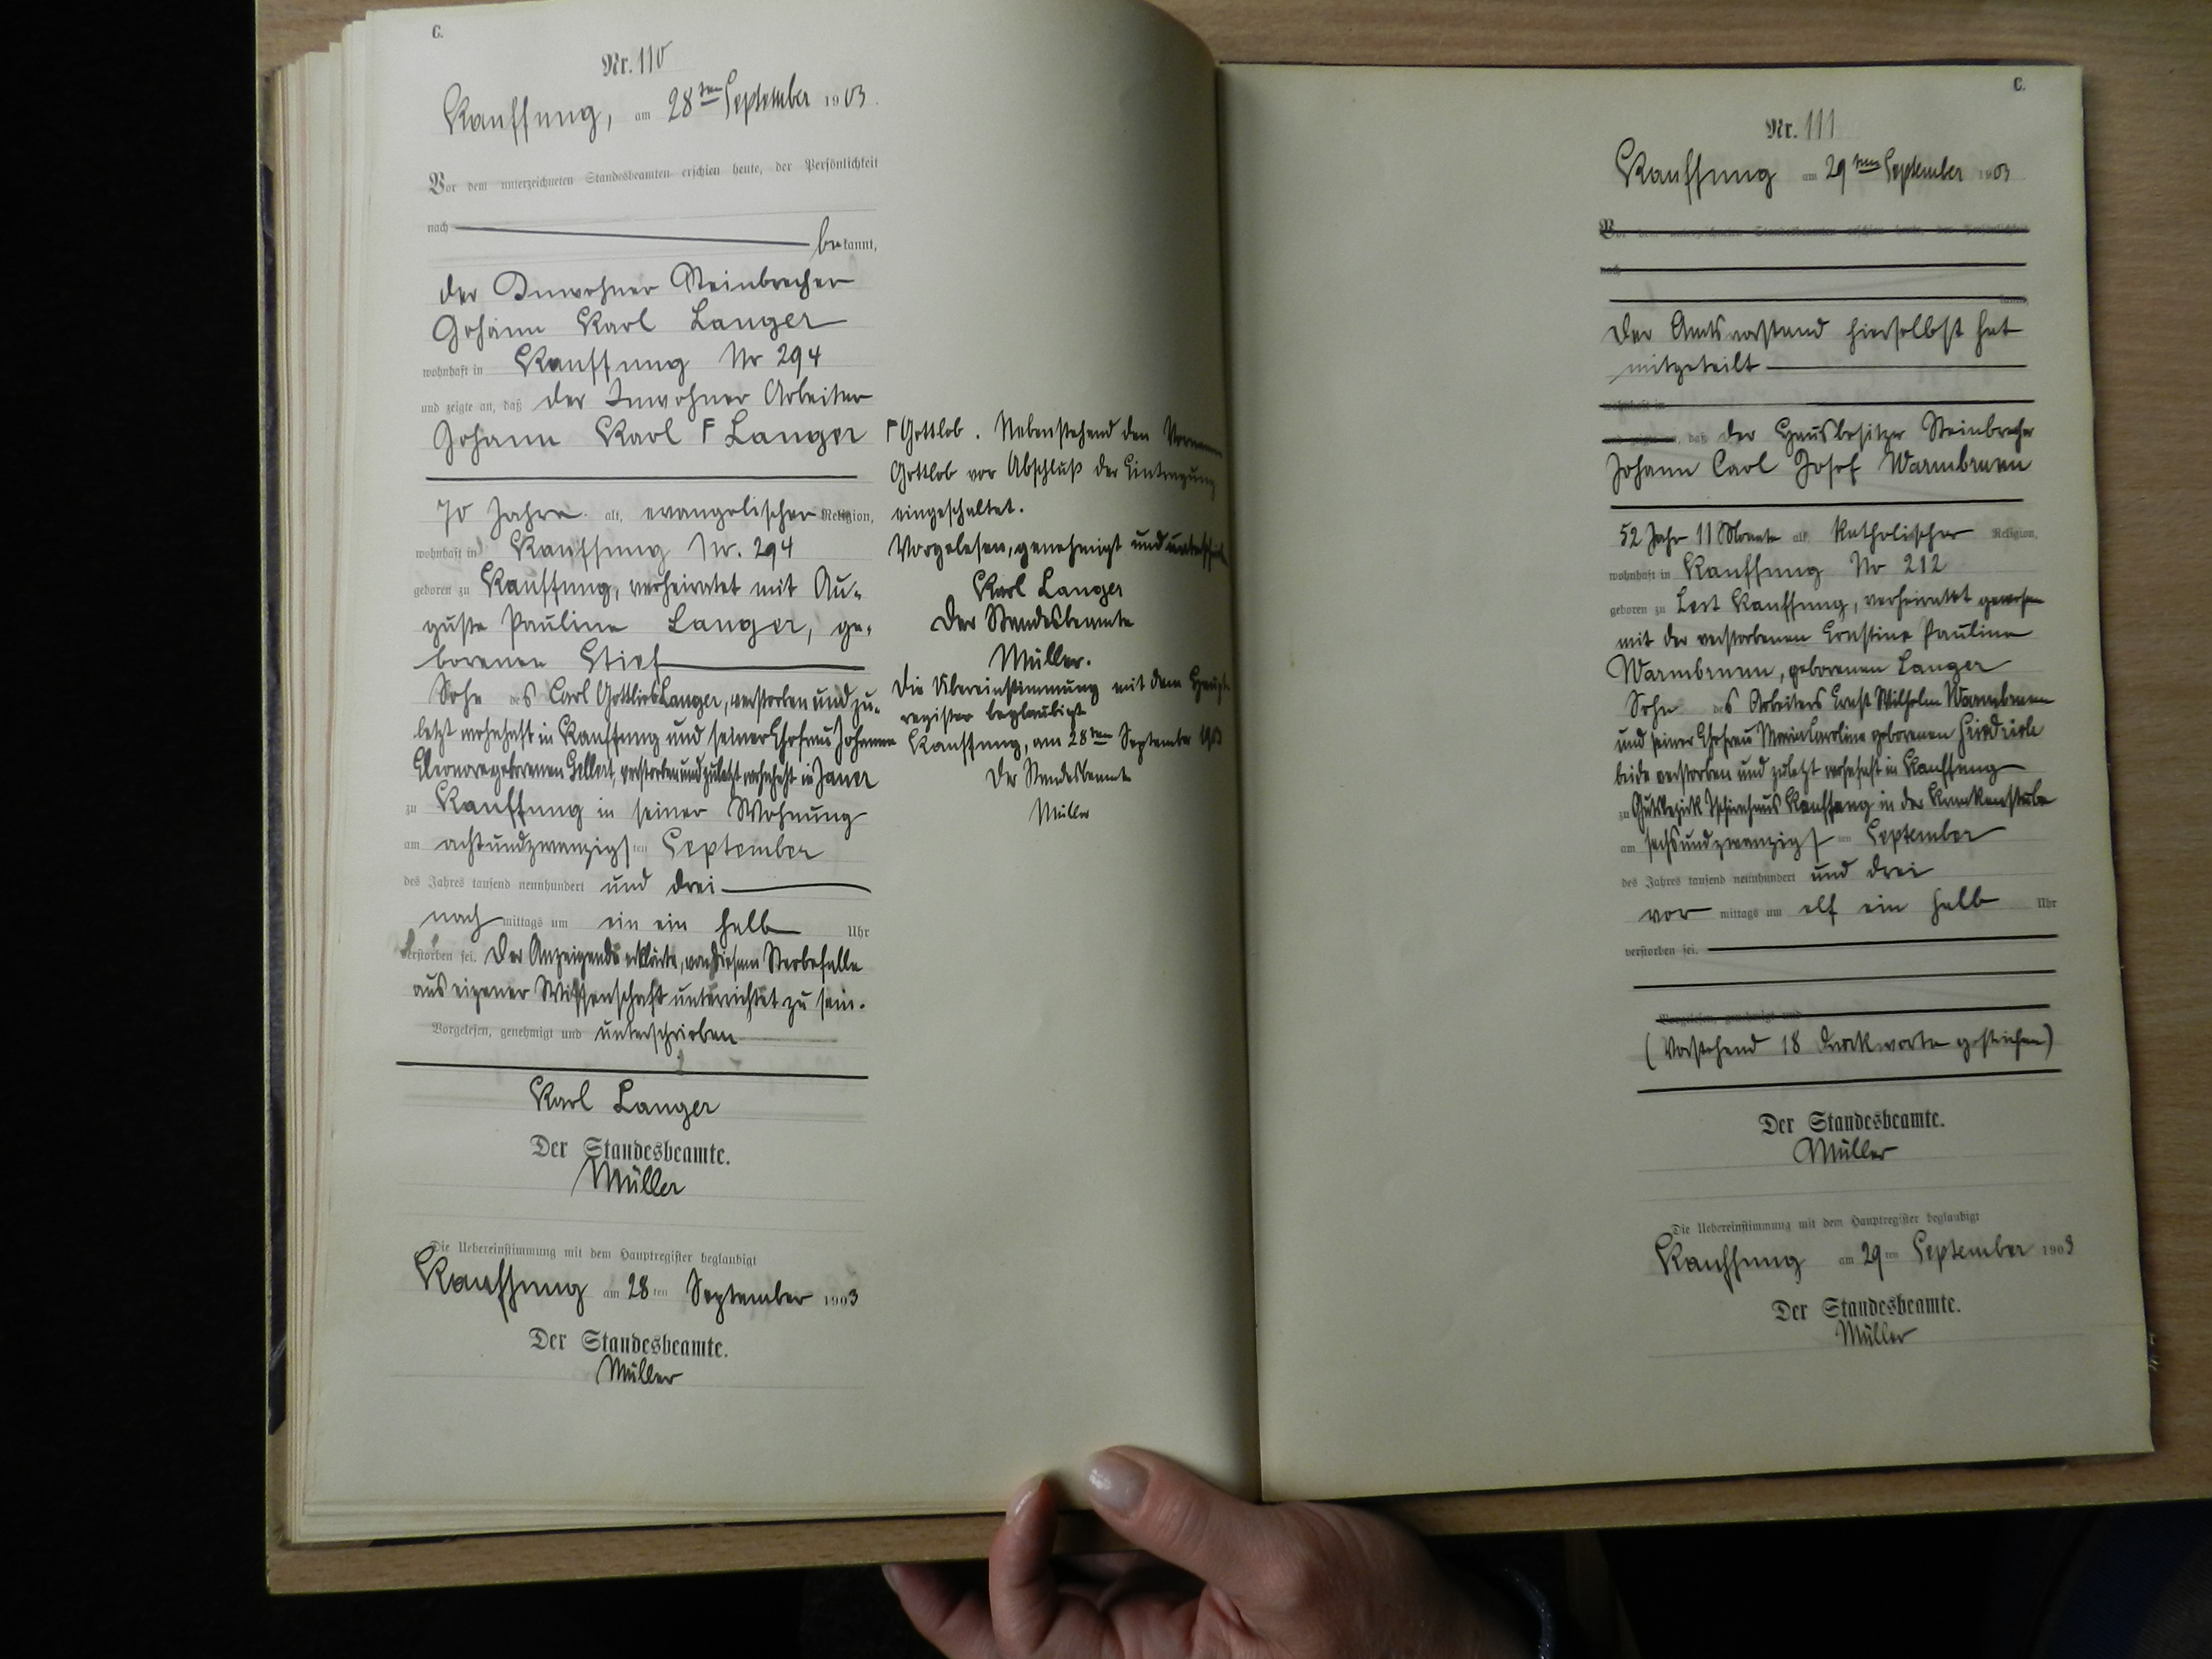 C.
Nr. 110
Kauffung, am 28ten September 1903.
Vor dem unterzeichneten Standesbeamten erschien heute, der Persönlichkeit
nach bekannt,
der Inwohner Steinbrecher
Johann Karl Langer
wohnhaft in Kauffung Nr 294
und zeigte an, daß der Inwohner Arbeiter
Johann Karl F Langer
70 Jahre alt, evangelischer Religion,
wohnhaft in Kauffung Nr. 294
geboren zu Kauffung, verheiratet mit Au-
guste Pauline Langer, ge-
borenen Stief
Sohn des Carl Gottlieb Langer, verstorben und zu-
letzt wohnhaft in Kauffung und seiner Ehefrau Johanne
Eleonore geborenen Gellert, verstorben und zuletzt wohnhaft in Jauer
zu Kauffung in seiner Wohnung
am achtundzwanzigsten September
des Jahres tausend neunhundert und drei
nachmittags um ein ein halb Uhr
verstorben sei. Der Anzeigende erklärte, von diesem Sterbefalle
aus eigener Wissenschaft unterrichtet zu sein.
Vorgelesen, genehmigt und unterschrieben
Karl Langer
Der Standesbeamte.
Müller
Die Uebereinstimmung mit dem Hauptregister beglaubigt
Kauffung am 28ten September 1903
Der Standesbeamte.
Müller
F Gottlob. Nebenstehend den Vornamen
Gottlob vor Abschluß der Eintragung
eingeschaltet.
Vorgelesen, genehmigt und unterschrieben
Karl Langer
Der Standesbeamte
Müller.
Die Übereinstimmung mit dem Haupt-
register beglaubigt
Kauffung, am 28ten September 1903
Der Standesbeamte
Müller
C.
Nr. 111
Kauffung am 29ten September 1903
Vor dem unterzeichneten Standesbeamten erschien heute, der Persönlichkeit
nach
kannt,
Der Amtsvorstand hierselbst hat
mitgeteilt
wohnhaft in
und zeigte an, daß der Hausbesitzer Steinbrecher
Johann Carl Josef Warmbrunn
52 Jahr 11 Monate alt, katholischer Religion,
wohnhaft in Kauffung Nr 212
geboren zu Kauffung, verheiratet gewesen
mit der verstorbenen Ernstine Pauline
Warmbrunn, geborenen Langer
Sohn des Arbeiters Ernst Wilhelm Warmbrunn
und seiner Ehefrau Maria Caroline geborenen
beide verstorben und zuletzt wohnhaft in Kauffung
zu Gutsbezirk Tschirnhaus Kauffung in der Krankenstube
am sechsundzwanzigsten September
des Jahres tausend neunhundert und drei
vormittags um elf ein halb Uhr
verstorben sei.
Vorgelesen, genehmigt und
(Vorstehend 18 Druckworte gestrichen)
Der Standesbeamte.
Müller
Die Uebereinstimmung mit dem Hauptregister beglaubigt
Kauffung am 29ten September 1903
Der Standesbeamte.
Müller